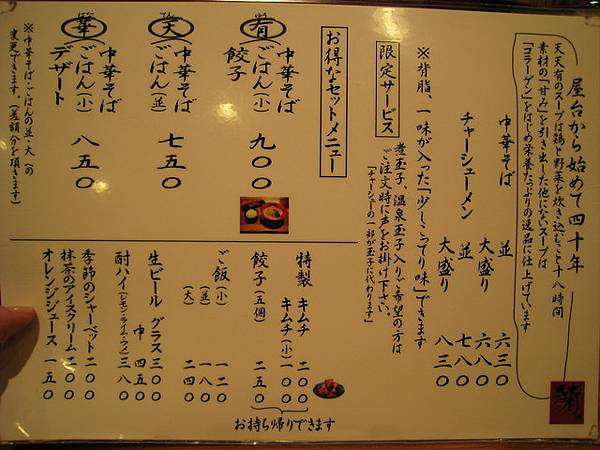 屋台から始めて四十年
天天有のスープは鶏と野菜を炊き込むこと十八時間
素材の「甘み」を引き出した他にないスープは
「コラーゲン」をはじめ栄養たっぷりの逸品に仕上げています
中華そば 並 六三〇
大盛り 六八〇
チャーシューメン 並 七八〇
大盛り 八三〇
※背脂、一味が入った「少しこってり味」できます
限定サービス
煮玉子、温泉玉子入りご希望の方は
ご注文時に声をお掛け下さい。
「チャーシューの一部が玉子に代わります」
お得なセットメニュー
有
中華そば
ごはん(小)
餃子
九〇〇
天
中華そば
ごはん(並)
七五〇
華
中華そば
ごはん(小)
デザート
八五〇
※中華そば・ごはんの並・大(の
変更できます。(差額分を頂きます)
特製 キムチ 二〇〇
キムチ(小) 一〇〇
餃子(五個) 二五〇
お持ち帰りできます
ご飯(小) 一二〇
(並) 一八〇
(大) 二四〇
生ビール グラス 三五〇
中 四五〇
酎ハイ(レモン・ライム・ウメ) 三八〇
季節のシャーベット 二〇〇
抹茶のアイスクリーム 二〇〇
オレンジジュース 一五〇